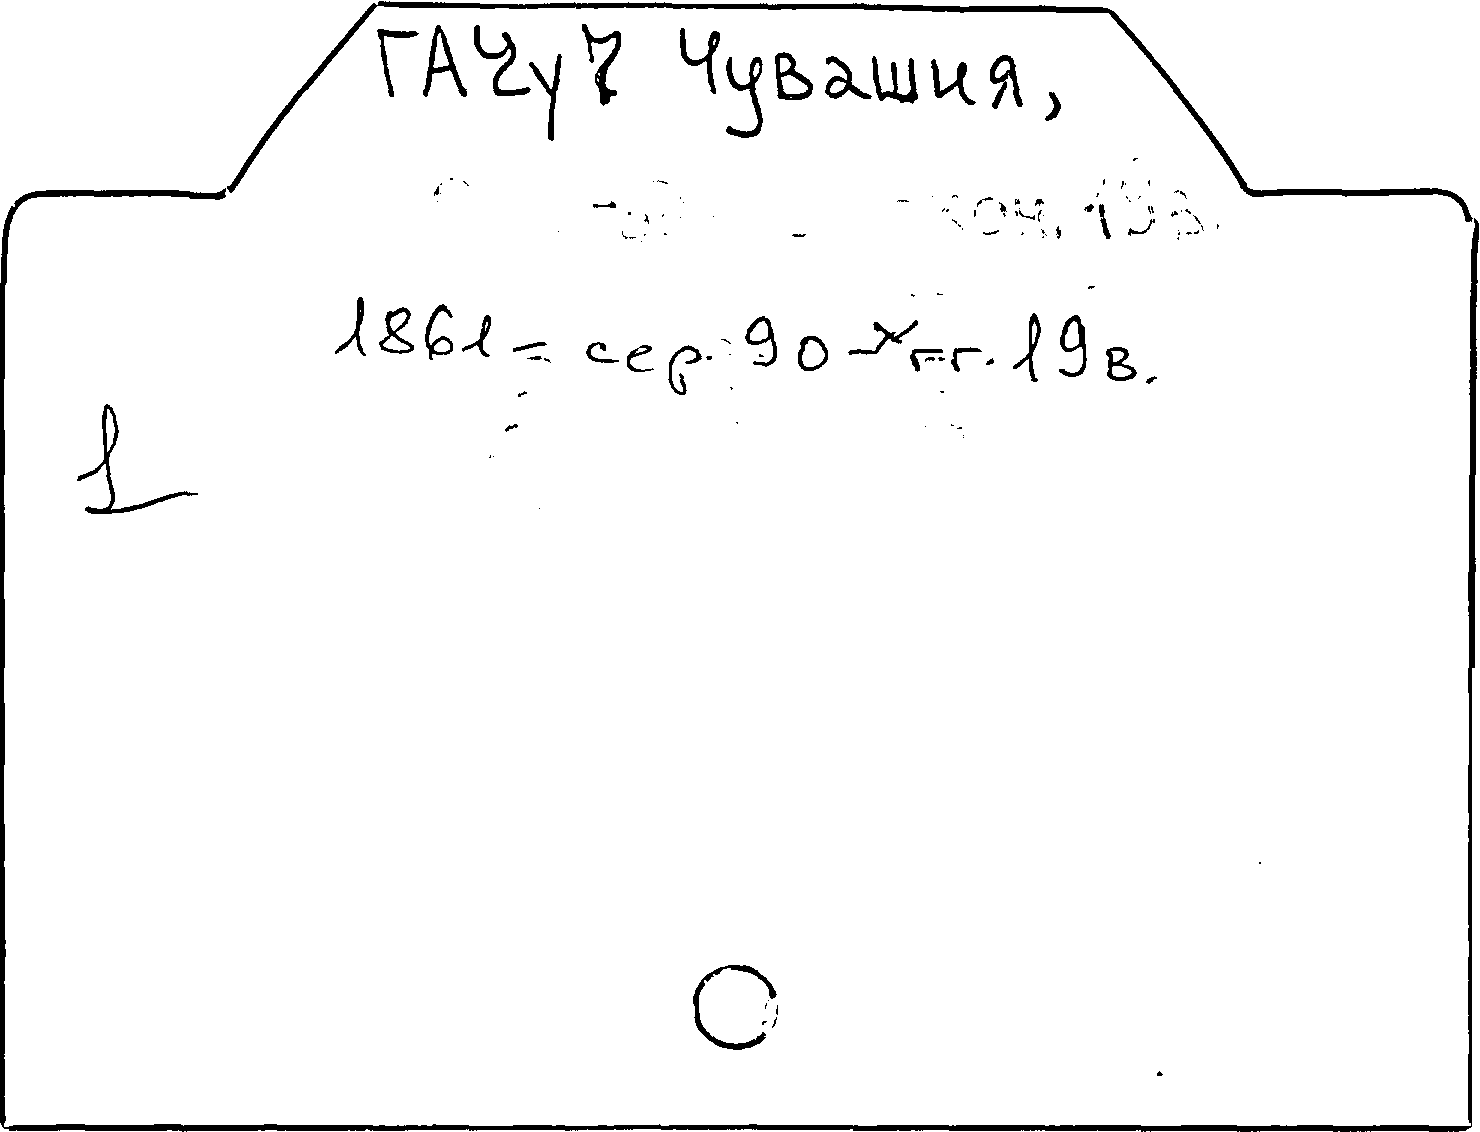 ГАЧуЧ Чувашия,
кон. 19 в.
1861 - сер. 90-х гг. 19 в.
1